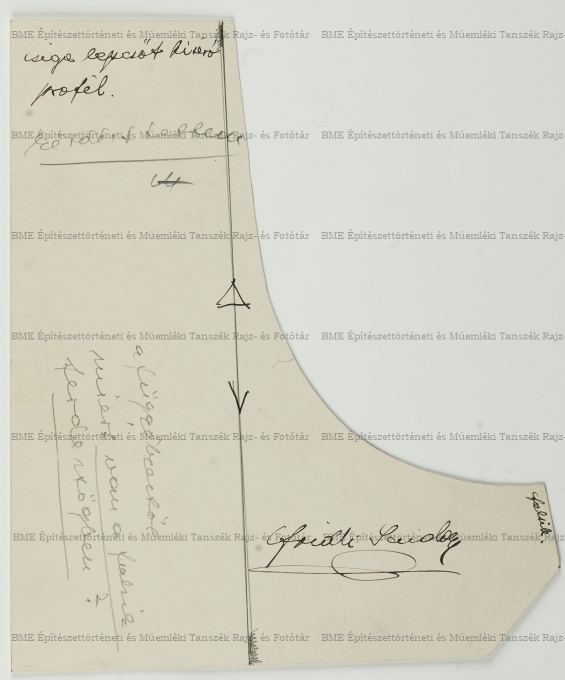 BME Építészettörténeti és Műemléki Tanszék Rajz- és Fotótár BME Építészettörténeti és Műemléki Tanszék Rajz-
csiga lépcsőt kisérő
profél.
BME Építészettörténeti és Műemléki Tanszék Rajz- és Fotótár BME Építészettörténeti és Műemléki Tanszék Rajz-
BME Építészettörténeti és Műemléki Tanszék Rajz- és Fotótár BME Építészettörténeti és Műemléki Tanszék Rajz-
BME Építészettörténeti és Műemléki Tanszék Rajz- és Fotótár BME Építészettörténeti és Műemléki Tanszék Rajz-
a függőlegestől
miért van a falsik
ferde szögben?
BME Építészettörténeti és Műemléki Tanszék Rajz- és Fotótár BME Építészettörténeti és Műemléki Tanszék Rajz-
falsik.
BME Építészettörténeti és Műemléki Tanszék Rajz- és Fotótár BME Építészettörténeti és Műemléki Tanszék Rajz-
Sándor
BME Építészettörténeti és Műemléki Tanszék Rajz- és Fotótár BME Építészettörténeti és Műemléki Tanszék Rajz-